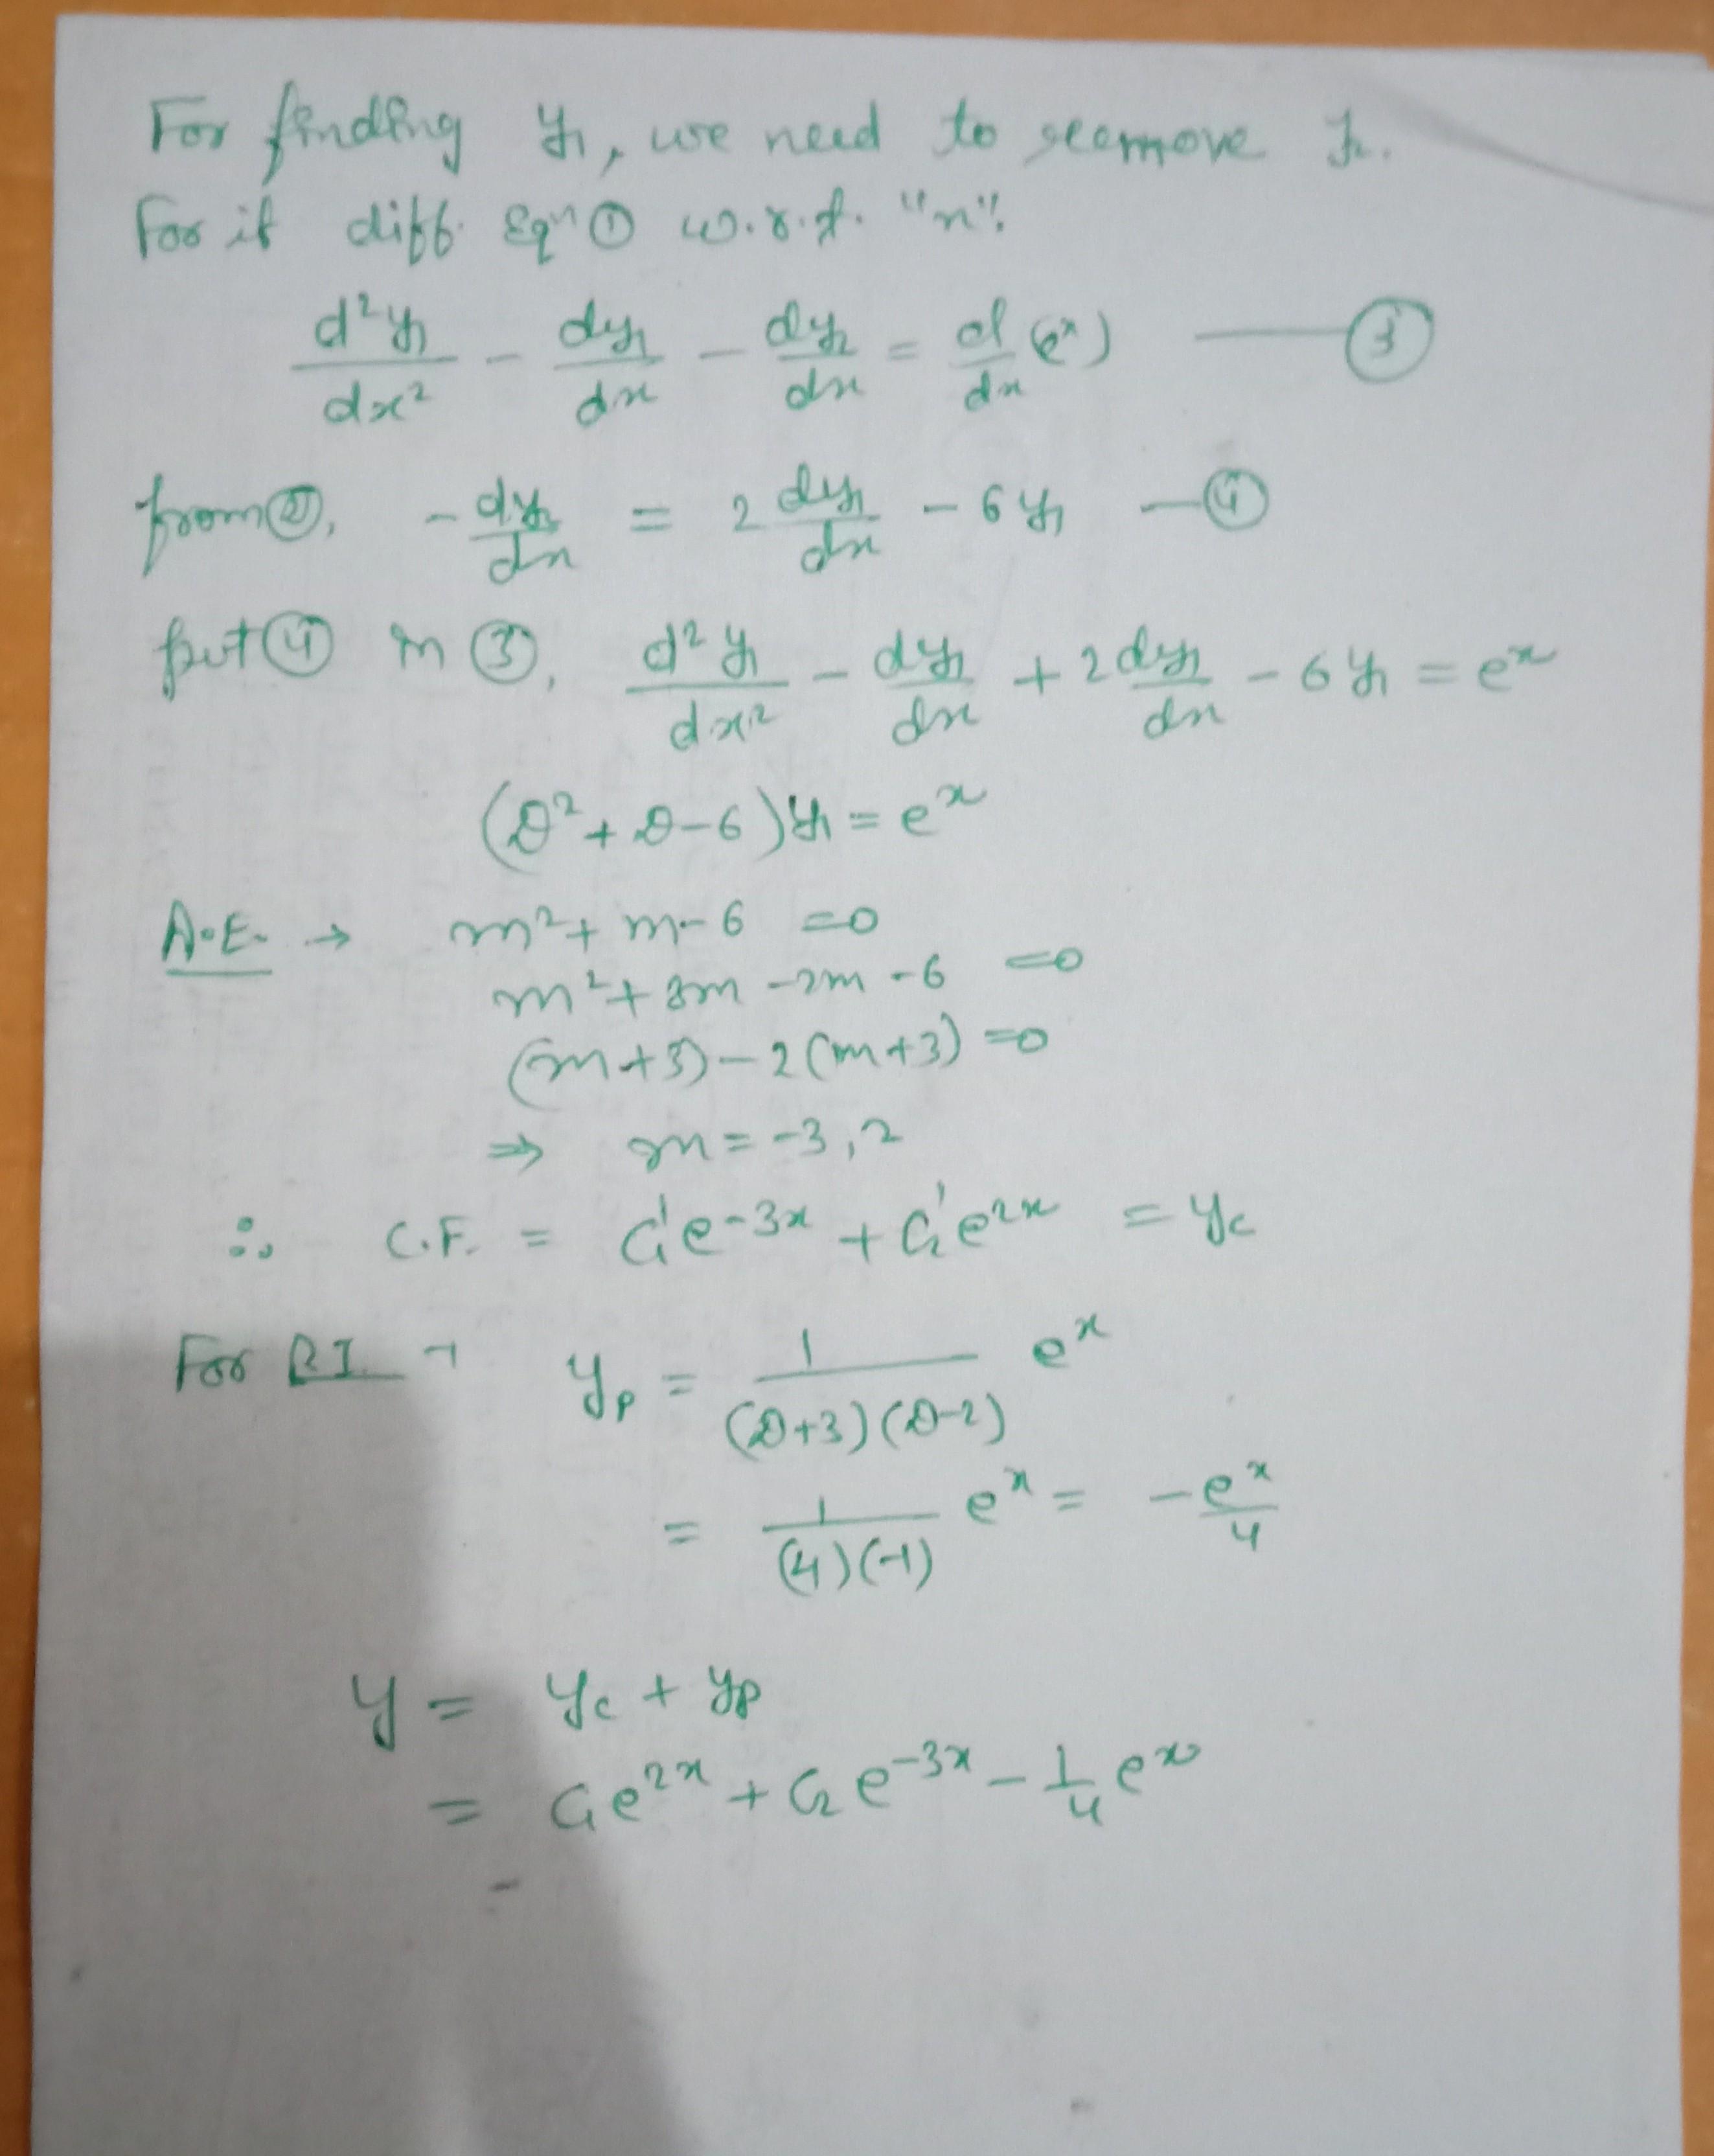 For finding y₁, we need to remove y₂.
For it diff. Eqⁿ ① w.r.t. "x".
d²y₁/dx² - dy₁/dx - dy₂/dx = d/dx (eˣ) —— ③
from ②, - dy₂/dx = 2 dy₁/dx - 6y₁ — ④
put ④ in ③, d²y₁/dx² - dy₁/dx + 2 dy₁/dx - 6y₁ = eˣ
(D² + D - 6)y₁ = eˣ
A.E. → m² + m - 6 = 0
m² + 3m - 2m - 6 = 0
(m+3) - 2(m+3) = 0
⇒ m = -3, 2
∴ C.F. = C₁'e^{-3x} + C₂'e^{2x} = y_c
For P.I. → y_p = 1/((D+3)(D-2)) eˣ
= 1/((4)(-1)) eˣ = -eˣ/4
y = y_c + y_p
= C₁e^{2x} + C₂e^{-3x} - 1/4 eˣ